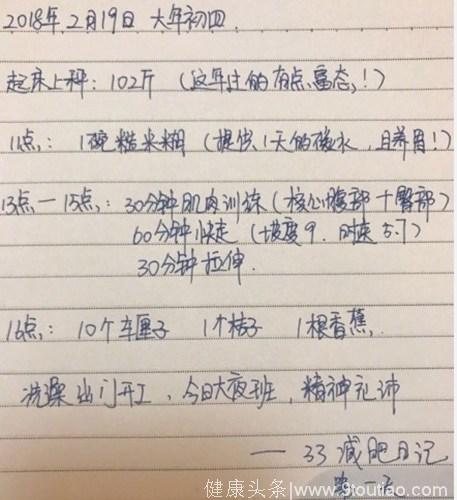 2018年2月19日 大年初四.
起床上秤：102斤（这年过的有点富态！）
11点：1碗糙米糊（提供1天的碳水，且养胃！）
13点—15点：30分钟肌肉训练（核心腹部+臀部）
60分钟快走（坡度9．时速5.7）
30分钟拉伸．
16点：10个车厘子 1个桔子 1根香蕉，
洗澡出门开工，今日大夜班，精神充沛
——33减肥日记
第一天
健康头条|www.9toutiao.com